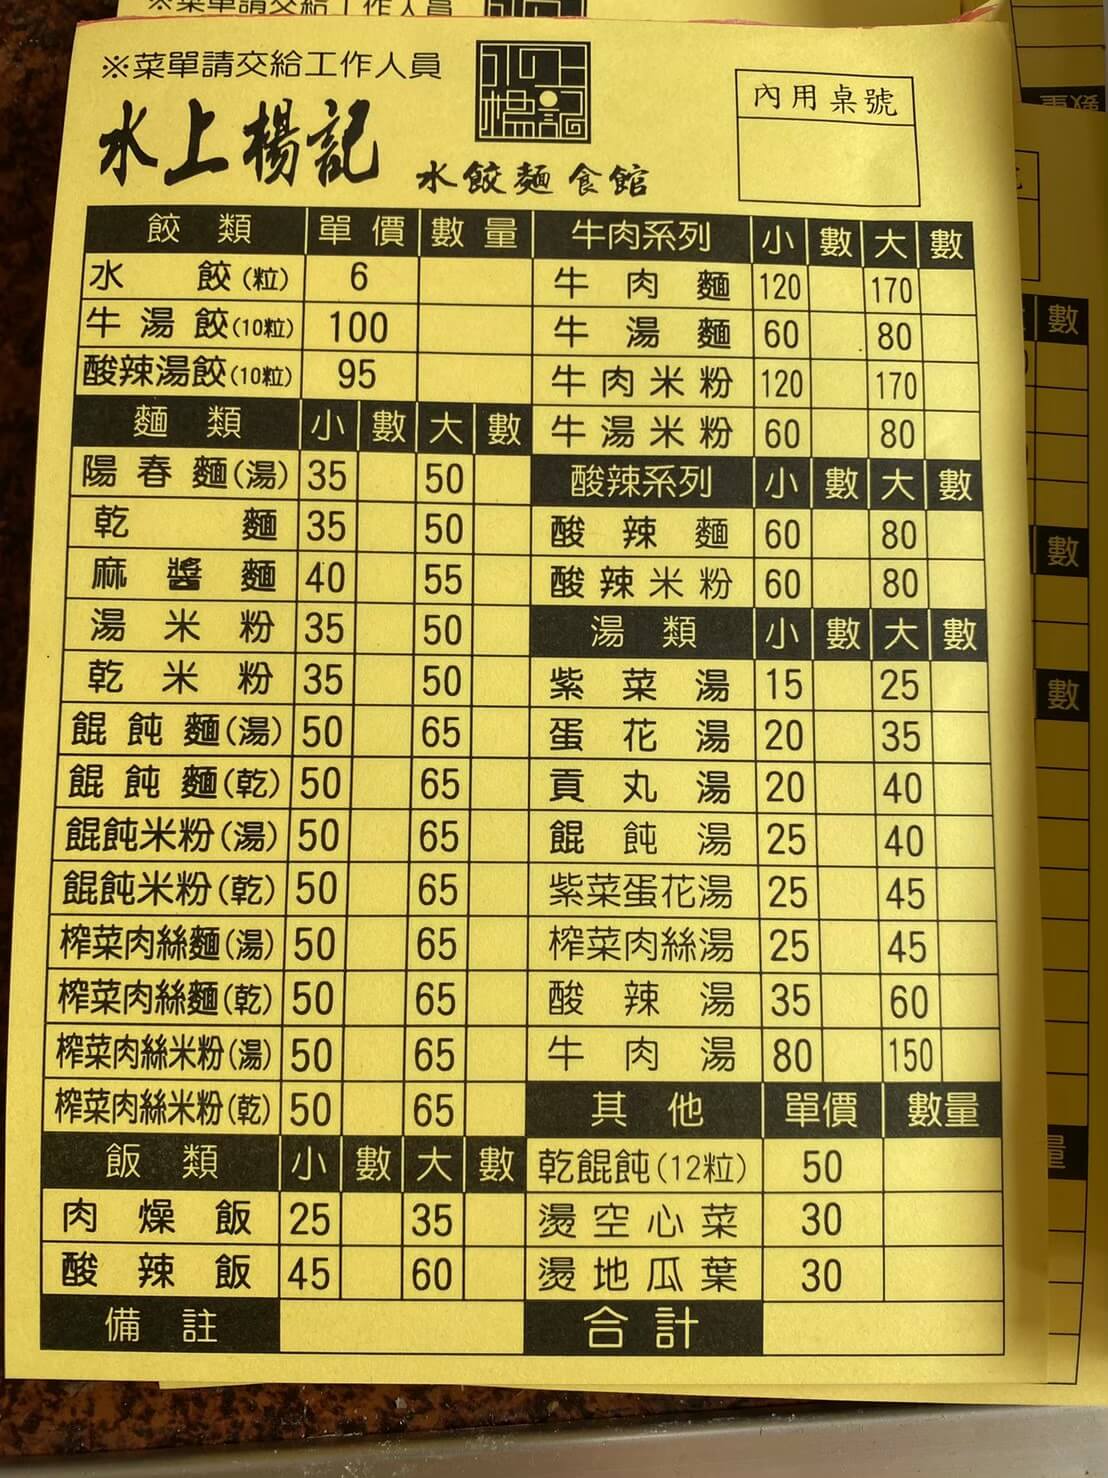 ※菜單請交給工作人員
水上楊記
水餃麵食館
內用桌號
餃類 單價 數量
水餃(粒) 6
牛湯餃(10粒) 100
酸辣湯餃(10粒) 95
麵類 小 數 大 數
陽春麵(湯) 35 50
乾麵 35 50
麻醬麵 40 55
湯米粉 35 50
乾米粉 35 50
餛飩麵(湯) 50 65
餛飩麵(乾) 50 65
餛飩米粉(湯) 50 65
餛飩米粉(乾) 50 65
榨菜肉絲麵(湯) 50 65
榨菜肉絲麵(乾) 50 65
榨菜肉絲米粉(湯) 50 65
榨菜肉絲米粉(乾) 50 65
飯類 小 數 大 數
肉燥飯 25 35
酸辣飯 45 60
備註
牛肉系列 小 數 大 數
牛肉麵 120 170
牛湯麵 60 80
牛肉米粉 120 170
牛湯米粉 60 80
酸辣系列 小 數 大 數
酸辣麵 60 80
酸辣米粉 60 80
湯類 小 數 大 數
紫菜湯 15 25
蛋花湯 20 35
貢丸湯 20 40
餛飩湯 25 40
紫菜蛋花湯 25 45
榨菜肉絲湯 25 45
酸辣湯 35 60
牛肉湯 80 150
其他 單價 數量
乾餛飩(12粒) 50
燙空心菜 30
燙地瓜葉 30
合計